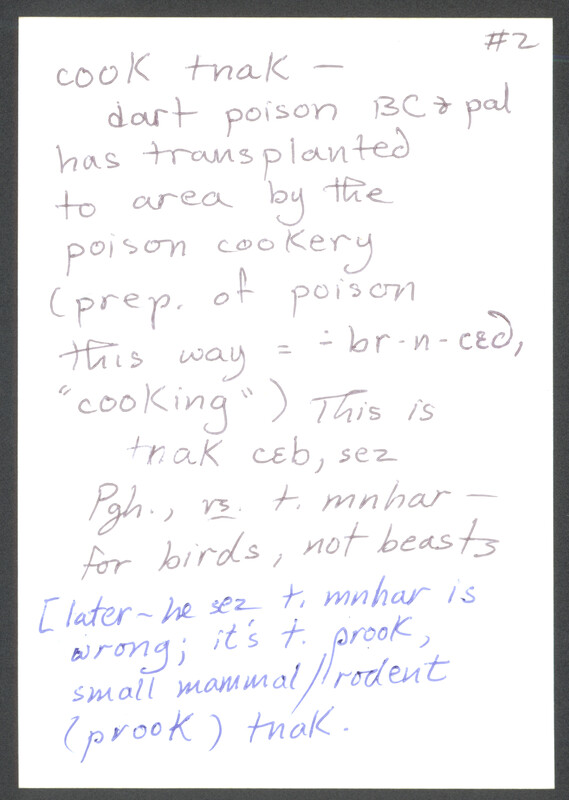 #2
cook tnak —
dart poison BC & pal
has transplanted
to area by the
poison cookery
(prep. of poison
this way = ÷br-n-cɛd,
"cooking") This is
tnak cɛb, sez
Pgh., vs. t. mnhar —
for birds, not beasts
[later – he sez t. mnhar is
wrong; it's t. prook,
small mammal/rodent
(prook) tnak.